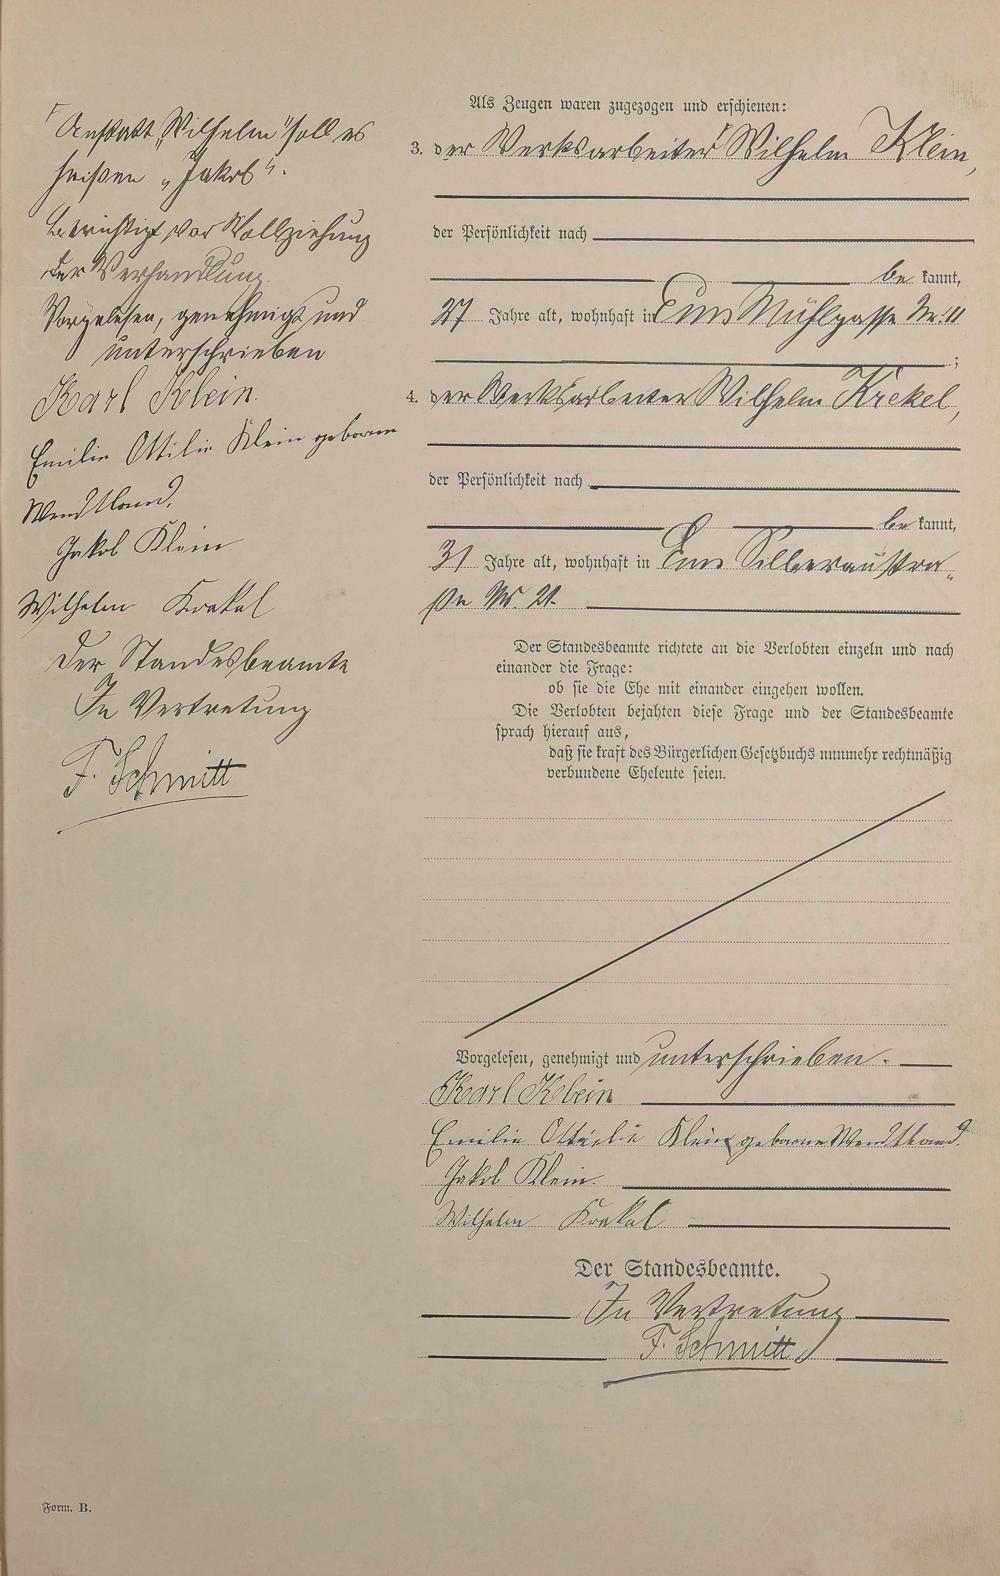 Anstatt „Wilhelm“ soll es
heißen „Jakob“.
Berichtigt vor Vollziehung
der Verhandlung.
Vorgelesen, genehmigt und
unterschrieben
Karl Klein.
Emilie Ottilie Klein geborene
Wendtland.
Jakob Klein
Wilhelm Krekel
Der Standesbeamte
In Vertretung
F. Schmitt
Als Zeugen waren zugezogen und erschienen:
3. der Werksarbeiter Wilhelm Klein,
der Persönlichkeit nach
be kannt,
27 Jahre alt, wohnhaft in Ems Mühlgasse Nr. 11
;
4. der Werksarbeiter Wilhelm Krekel,
der Persönlichkeit nach
be kannt,
31 Jahre alt, wohnhaft in Ems Silberaustra-
ße Nr. 21.
Der Standesbeamte richtete an die Verlobten einzeln und nach
einander die Frage:
ob sie die Ehe mit einander eingehen wollen.
Die Verlobten bejahten diese Frage und der Standesbeamte
sprach hierauf aus,
daß sie kraft des Bürgerlichen Gesetzbuchs nunmehr rechtmäßig
verbundene Eheleute seien.
Vorgelesen, genehmigt und unterschrieben.
Karl Klein
Emilie Ottilie Klein geborene Wendtland.
Jakob Klein.
Wilhelm Krekel
Der Standesbeamte.
In Vertretung
F. Schmitt
Form. B.